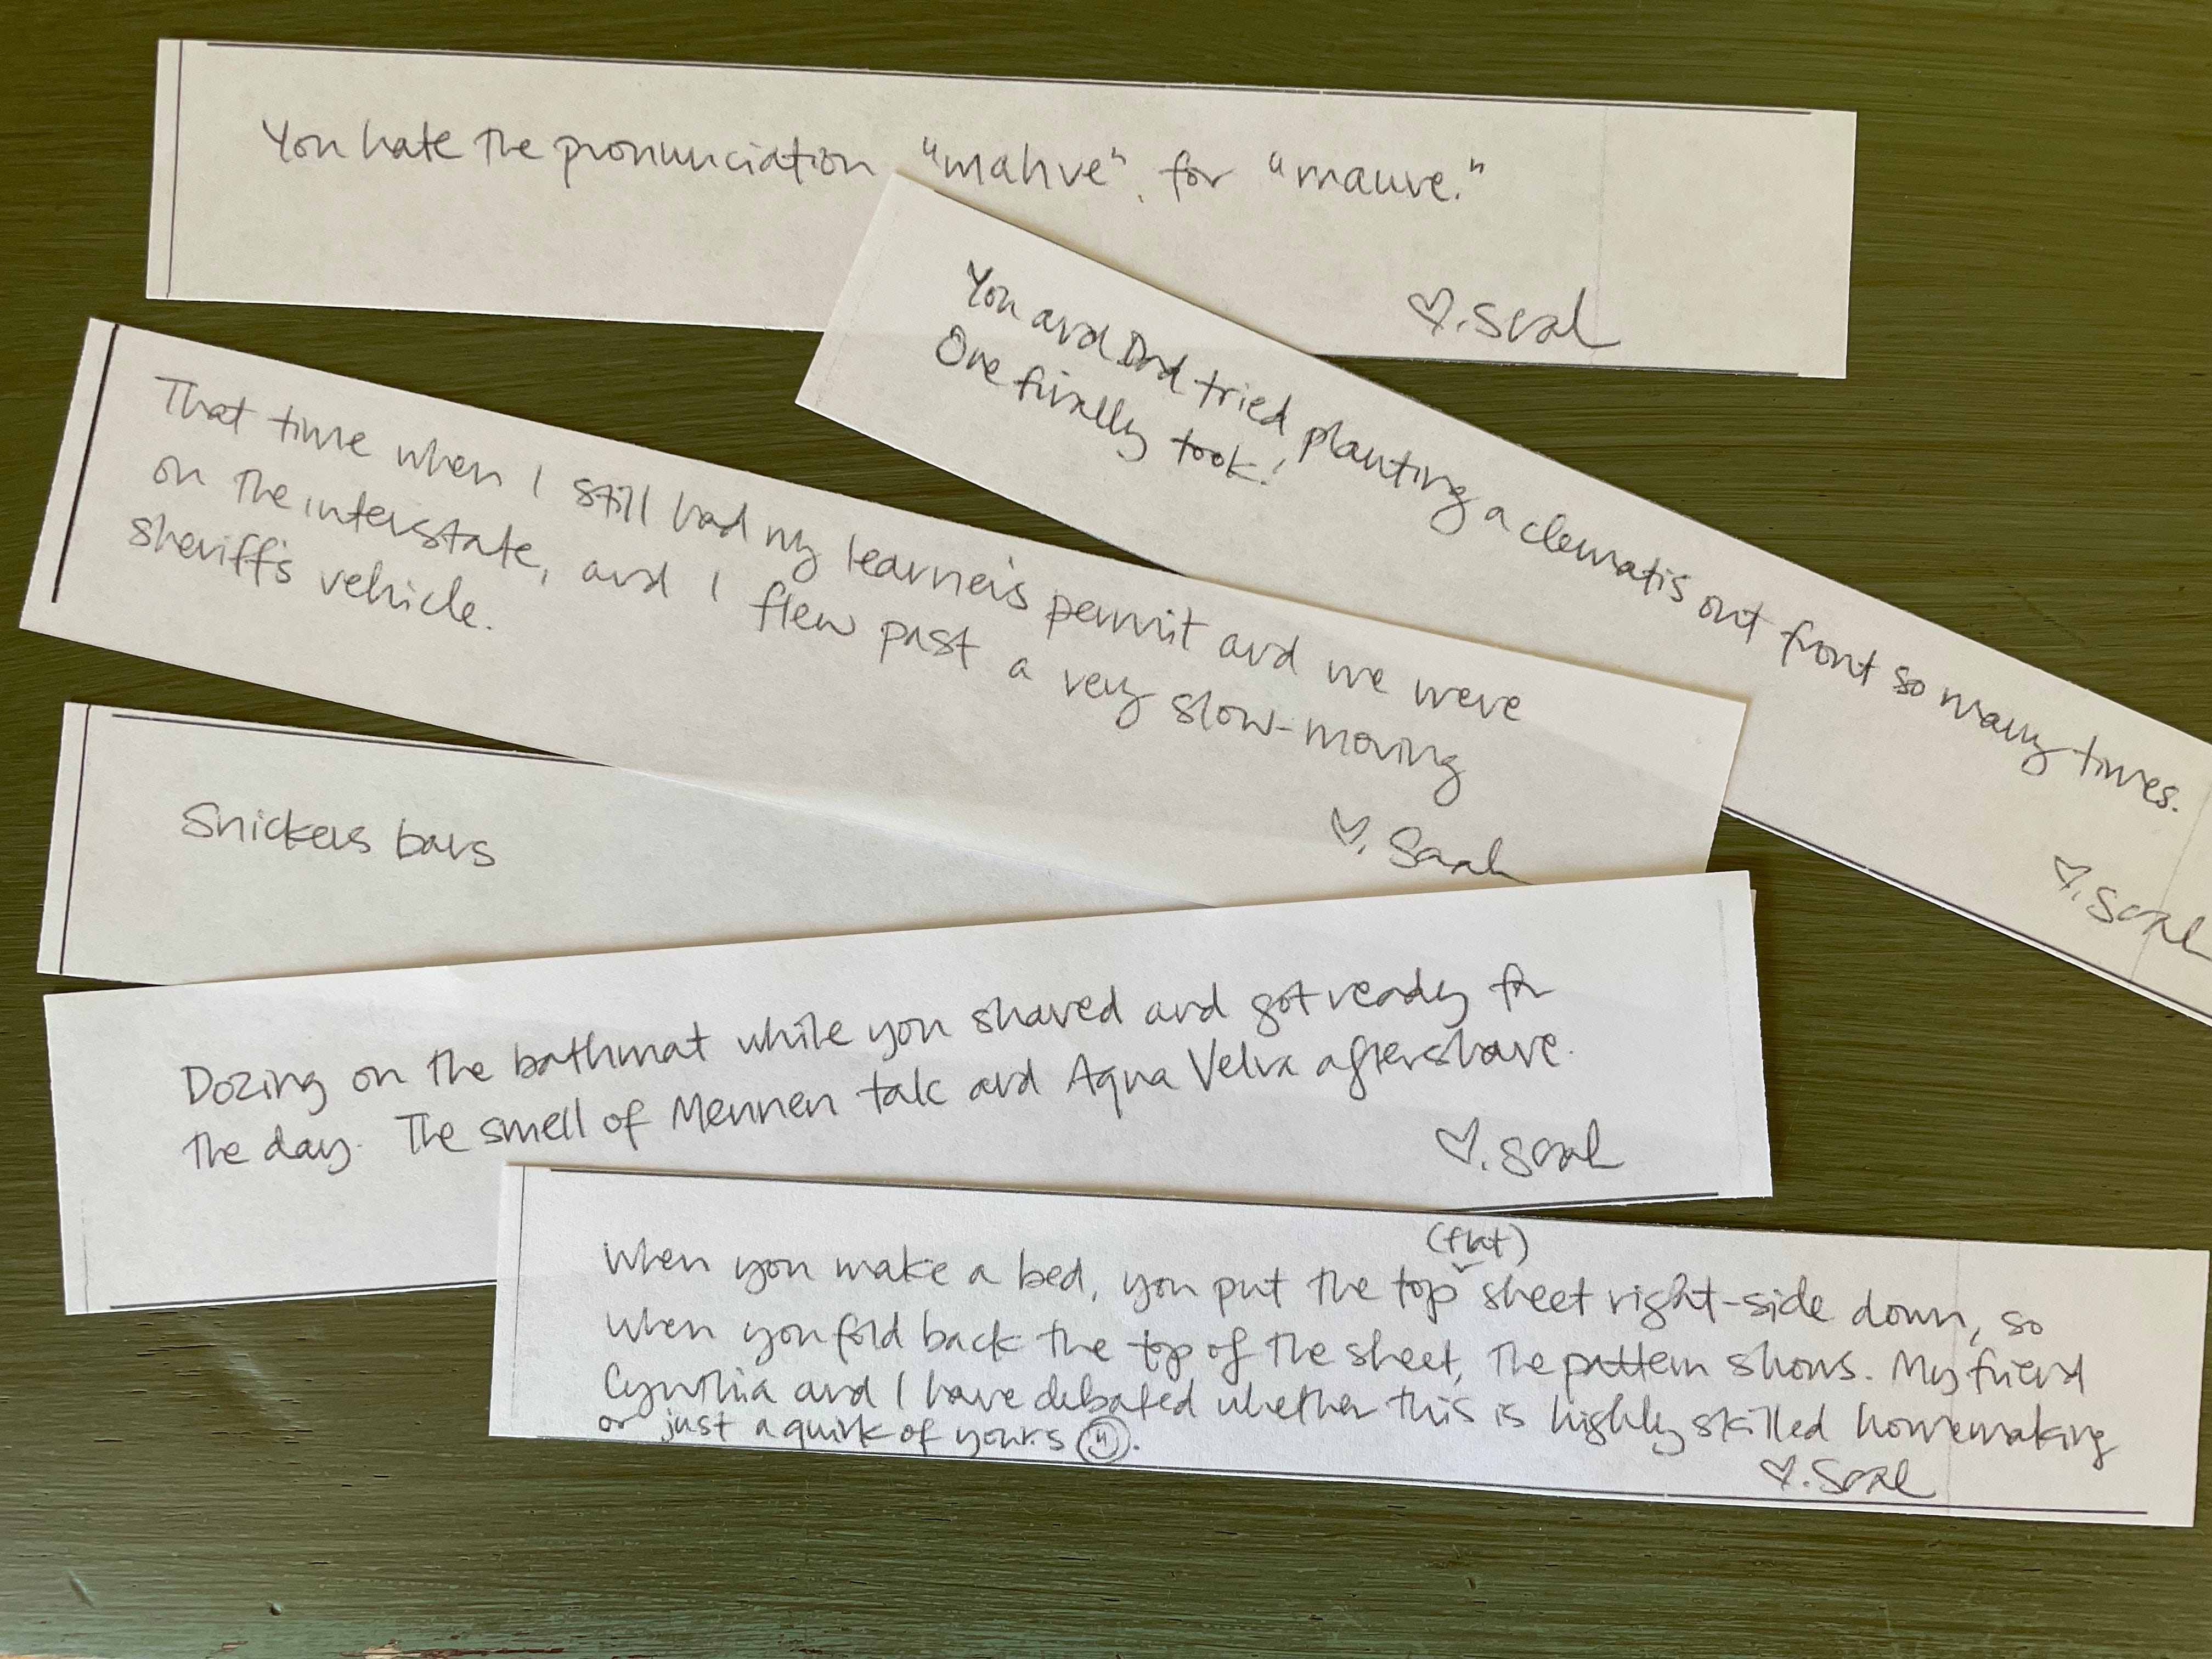 You hate the pronunciation "mahve" for "mauve."
♡. Sarah
You and Dad tried planting a clematis out front so many times.
One finally took!
♡. Sarah
That time when I still had my learner's permit and we were
on the interstate, and I flew past a very slow-moving
sheriff's vehicle.
♡. Sarah
Snickers bars
Dozing on the bathmat while you shaved and got ready for
the day. The smell of Mennen talc and Aqua Velva aftershave.
♡. Sarah
(flat)
When you make a bed, you put the top sheet right-side down, so
when you fold back the top of the sheet, the pattern shows. My friend
Cynthia and I have debated whether this is highly skilled homemaking
or just a quirk of yours ☺.
♡. Sarah